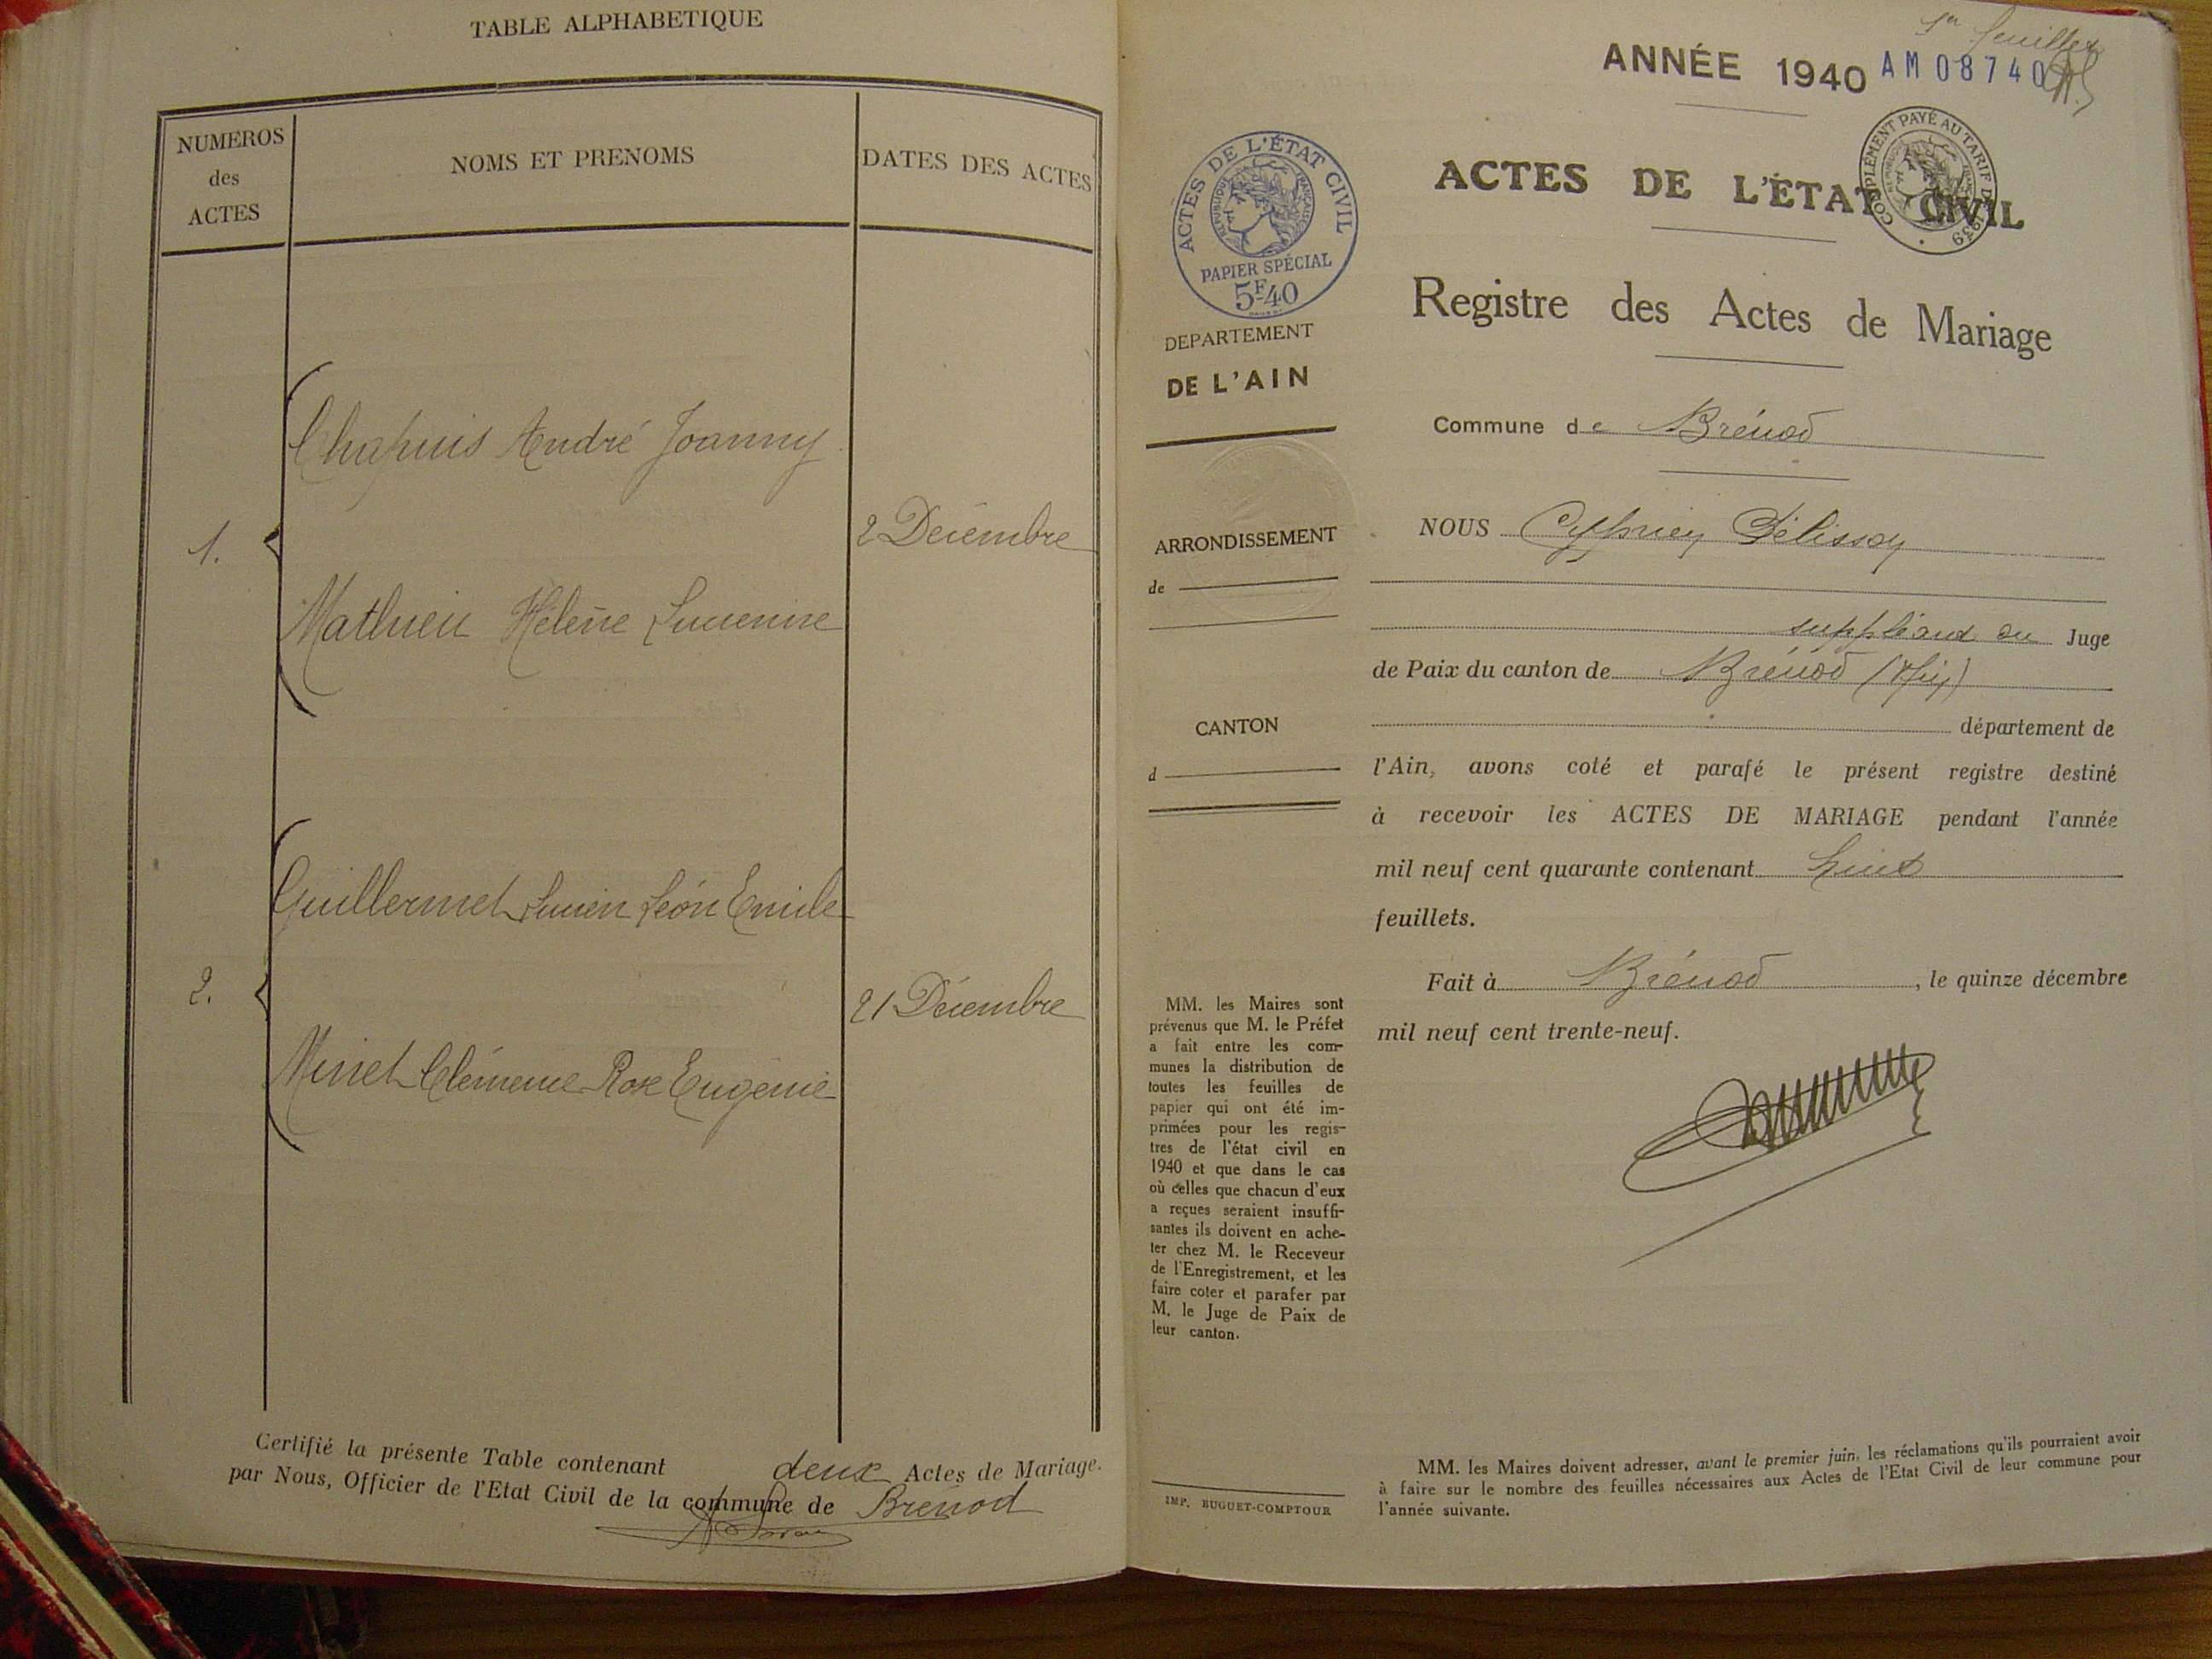 TABLE ALPHABETIQUE
NUMEROS
des
ACTES
NOMS ET PRENOMS
DATES DES ACTES
Chapuis André Joanny
1.
2 Décembre
Mathieu Hélène Lucienne
Guillermet Lucien Léon Emile
2.
21 Décembre
Minet Clémence Rose Eugénie
Certifié la présente Table contenant deux Actes de Mariage.
par Nous, Officier de l'Etat Civil de la commune de Brénod
1er feuillet
ANNÉE 1940 AM08740
ACTES DE L'ÉTAT CIVIL
PAPIER SPÉCIAL
5F40
RÉPUBLIQUE FRANÇAISE
COMPLÉMENT PAYÉ AU TARIF DE 1939
ACTES DE L'ÉTAT CIVIL
Registre des Actes de Mariage
DEPARTEMENT
DE L'AIN
Commune de Brénod
ARRONDISSEMENT
de
CANTON
d
NOUS Cyprien Pélisson
suppléant du Juge
de Paix du canton de Brénod (Ain)
département de
l'Ain, avons coté et parafé le présent registre destiné
à recevoir les ACTES DE MARIAGE pendant l'année
mil neuf cent quarante contenant huit
feuillets.
Fait à Brénod, le quinze décembre
mil neuf cent trente-neuf.
MM. les Maires sont
prévenus que M. le Préfet
a fait entre les com-
munes la distribution de
toutes les feuilles de
papier qui ont été im-
primées pour les regis-
tres de l'état civil en
1940 et que dans le cas
où celles que chacun d'eux
a reçues seraient insuffi-
santes ils doivent en ache-
ter chez M. le Receveur
de l'Enregistrement, et les
faire coter et parafer par
M. le Juge de Paix de
leur canton.
IMP. BUGUET-COMPTOUR
MM. les Maires doivent adresser, avant le premier juin, les réclamations qu'ils pourraient avoir
à faire sur le nombre des feuilles nécessaires aux Actes de l'Etat Civil de leur commune pour
l'année suivante.